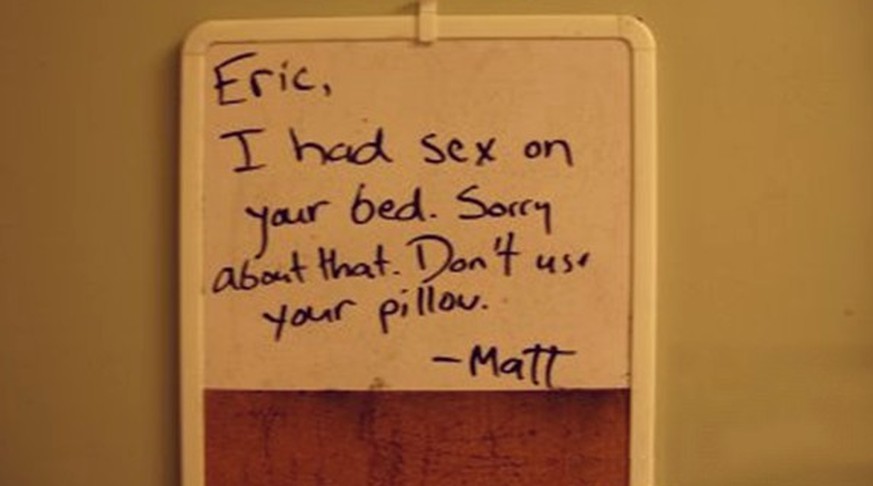 Eric,
I had sex on
your bed. Sorry
about that. Don't use
your pillow.
-Matt